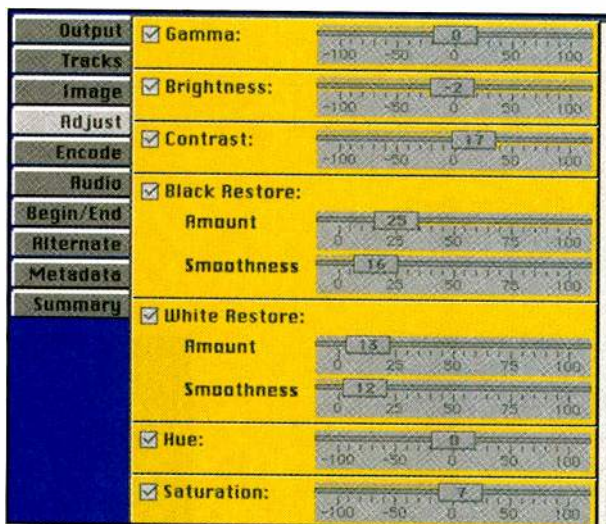 Output
Tracks
Image
Adjust
Encode
Audio
Begin/End
Alternate
Metadata
Summary
Gamma:
0
-100 -50 0 50 100
Brightness:
-2
-100 -50 0 50 100
Contrast:
17
-100 -50 0 50 100
Black Restore:
Amount
25
0 25 50 75 100
Smoothness
16
0 25 50 75 100
White Restore:
Amount
13
0 25 50 75 100
Smoothness
12
0 25 50 75 100
Hue:
0
-100 -50 0 50 100
Saturation:
7
-100 -50 0 50 100